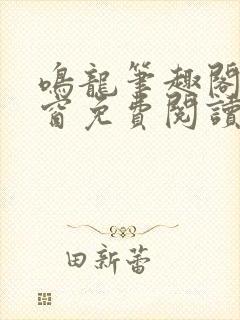 鳴龍筆趣閣
窗免費閱讀
田新蕾